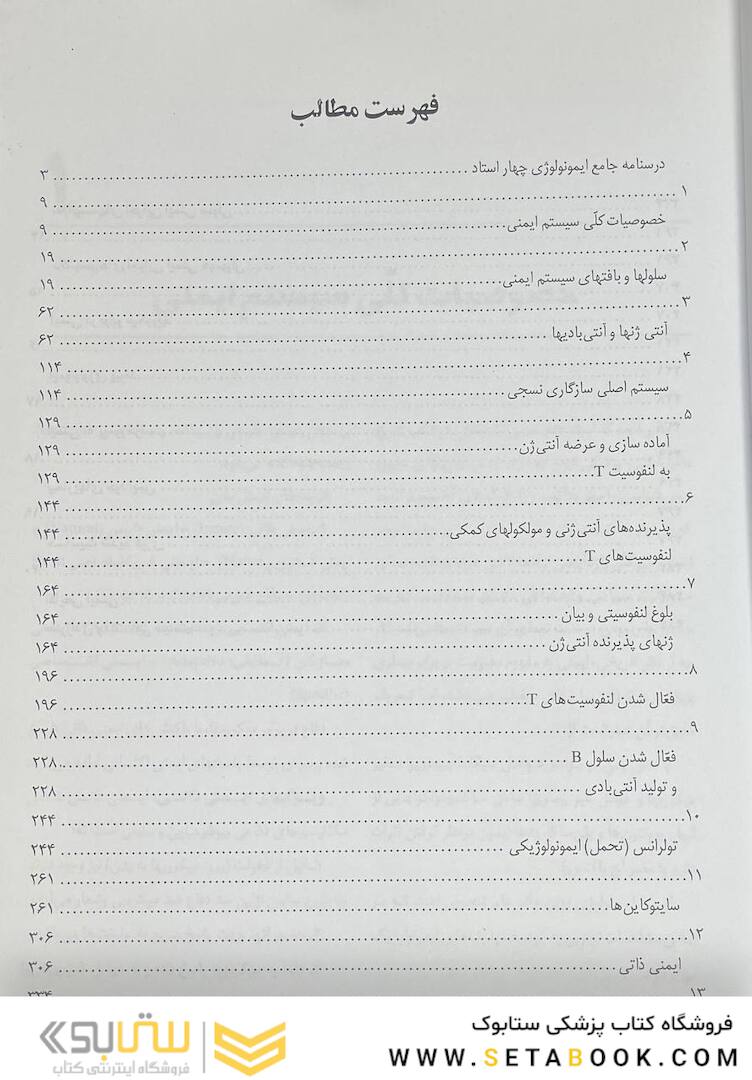 فهرست مطالب
درسنامه جامع ایمونولوژی چهار استاد ........ ۳
۱ ........ ۹
خصوصیات کلّی سیستم ایمنی ........ ۹
۲ ........ ۱۹
سلولها و بافتهای سیستم ایمنی ........ ۱۹
۳ ........ ۶۲
آنتی ژنها و آنتی‌بادیها ........ ۶۲
۴ ........ ۱۱۴
سیستم اصلی سازگاری نسجی ........ ۱۱۴
۵ ........ ۱۲۹
آماده سازی و عرضه آنتی‌ژن ........ ۱۲۹
به لنفوسیت T ........ ۱۲۹
۶ ........ ۱۴۴
پذیرنده‌های آنتی‌ژنی و مولکولهای کمکی ........ ۱۴۴
لنفوسیت‌های T ........ ۱۴۴
۷ ........ ۱۶۴
بلوغ لنفوسیتی و بیان ........ ۱۶۴
ژنهای پذیرنده آنتی‌ژن ........ ۱۶۴
۸ ........ ۱۹۶
فعّال شدن لنفوسیت‌های T ........ ۱۹۶
۹ ........ ۲۲۸
فعّال شدن سلول B ........ ۲۲۸
و تولید آنتی‌بادی ........ ۲۲۸
۱۰ ........ ۲۴۴
تولرانس (تحمل) ایمونولوژیکی ........ ۲۴۴
۱۱ ........ ۲۶۱
سایتوکاین‌ها ........ ۲۶۱
۱۲ ........ ۳۰۶
ایمنی ذاتی ........ ۳۰۶
۱۳ ........ ۳۳۴
فروشگاه کتاب پزشکی ستابوک
WWW.SETABOOK.COM
ستابوک
فروشگاه اینترنتی کتاب